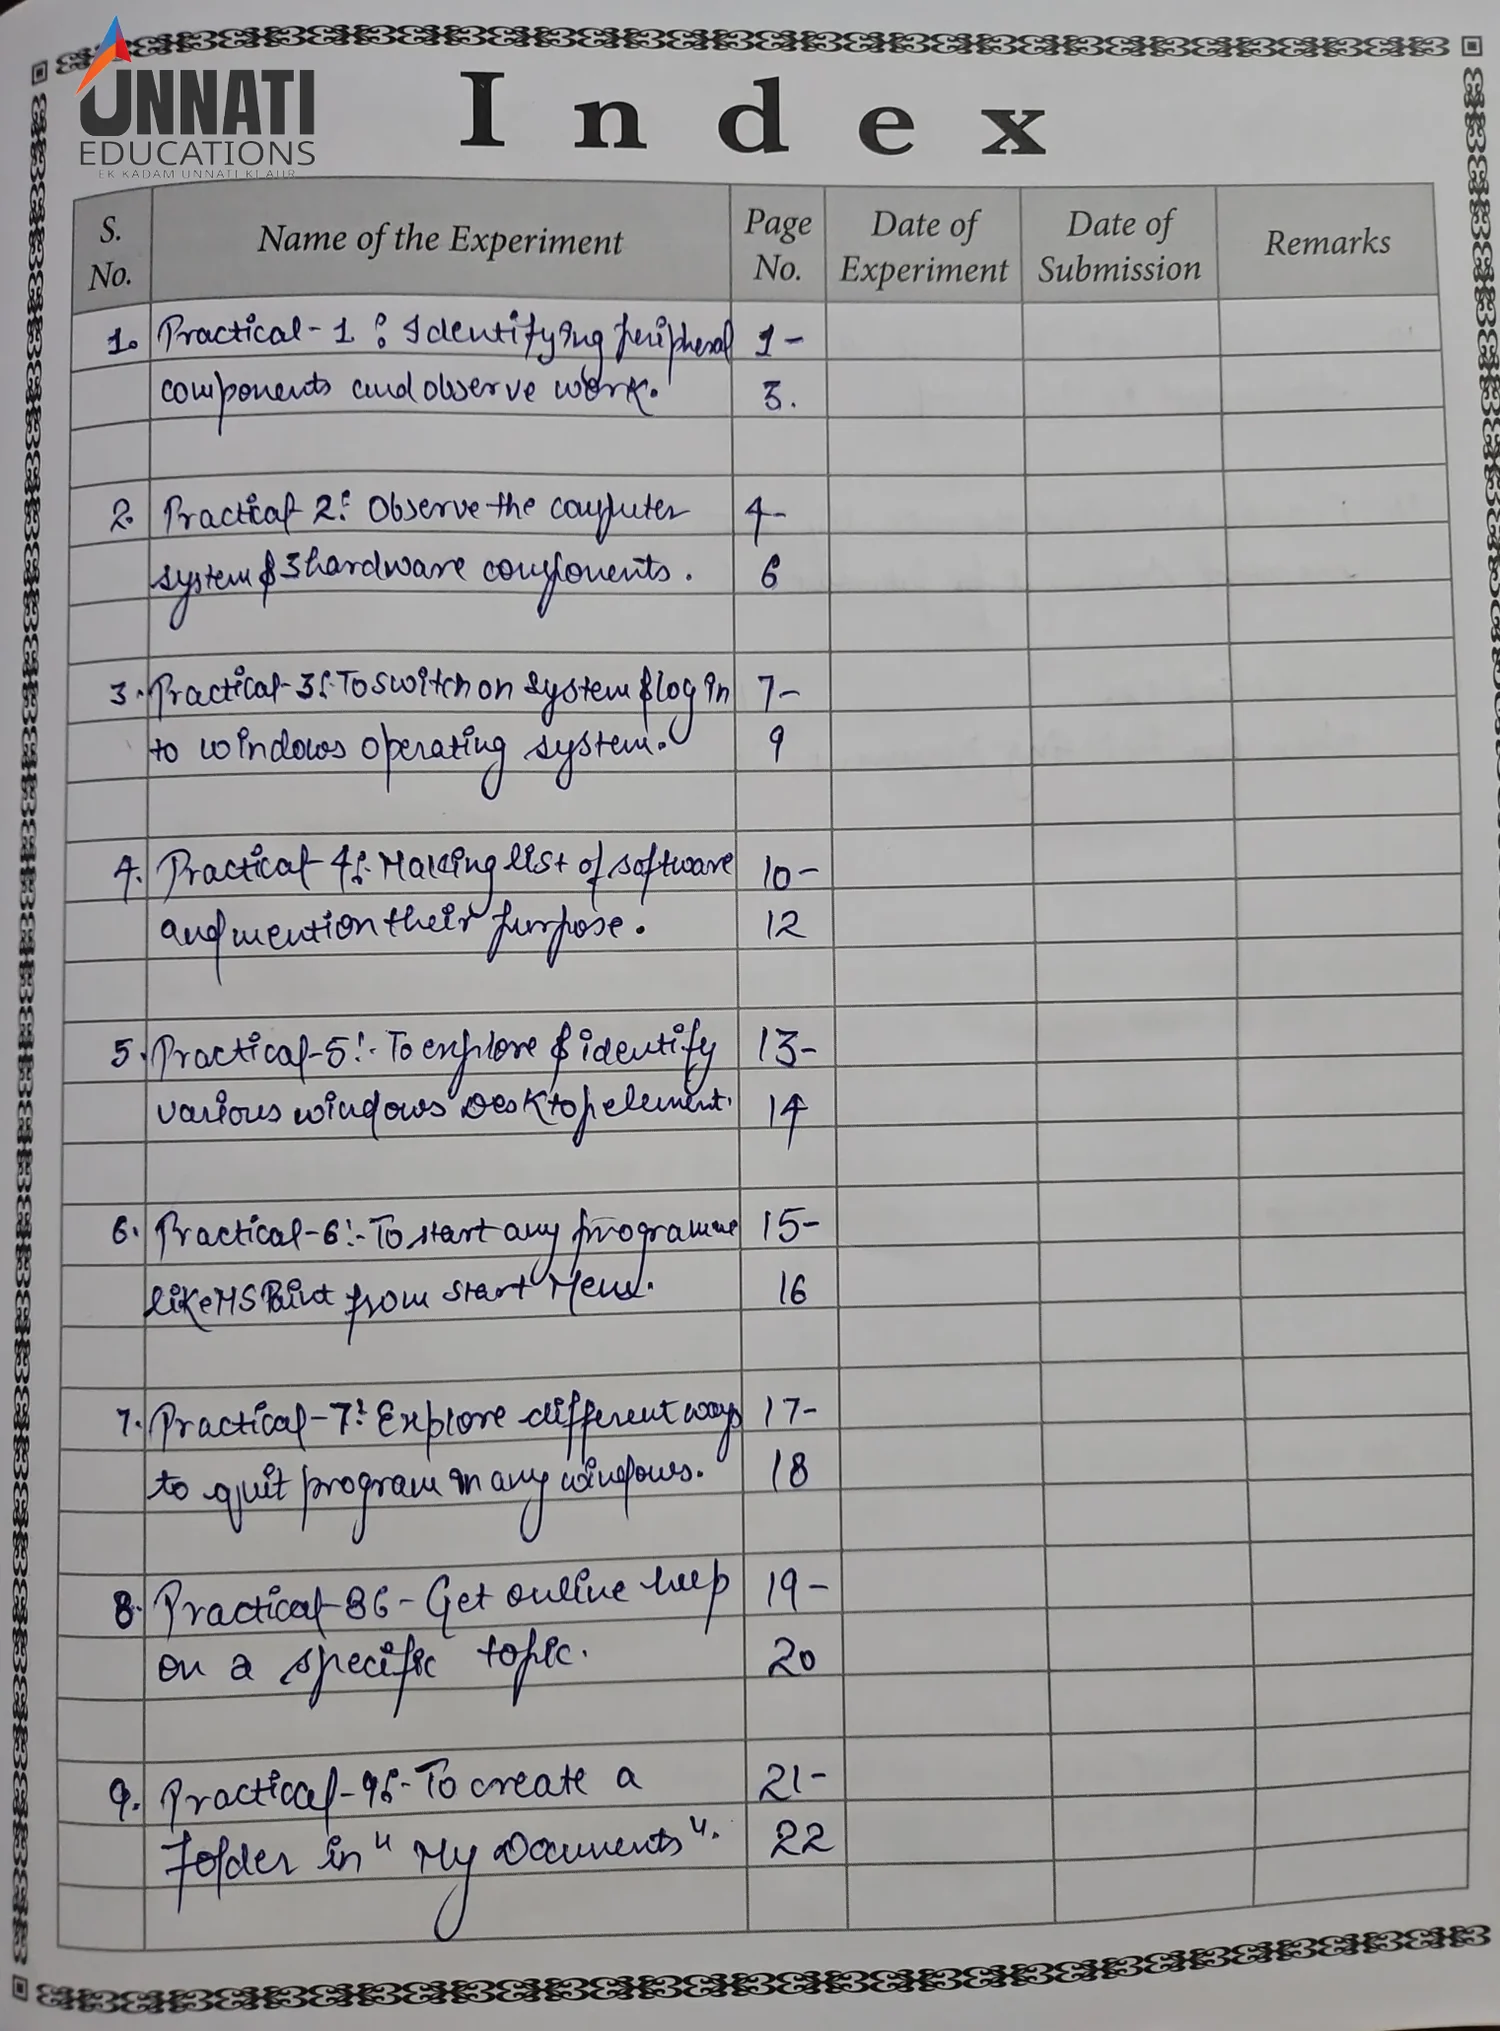 UNNATI
EDUCATIONS
EK KADAM UNNATI KI AUR
Index
S. No. Name of the Experiment Page No. Date of Experiment Date of Submission Remarks
1. Practical-1: Identifying peripheral 1-
components and observe work. 3.
2. Practical 2: Observe the computer 4-
system & hardware components. 6
3. Practical-3:- To switch on system & log in 7-
to windows operating system. 9
4. Practical-4:- Making list of software 10-
and mention their purpose. 12
5. Practical-5:- To explore & identify 13-
various windows Desktop element. 14
6. Practical-6:- To start any programme 15-
like MS Paint from start Menu. 16
7. Practical-7: Explore different ways 17-
to quit program in any windows. 18
8. Practical-8:- Get online help 19-
on a specific topic. 20
9. Practical-9:- To create a 21-
Folder in "My Documents". 22